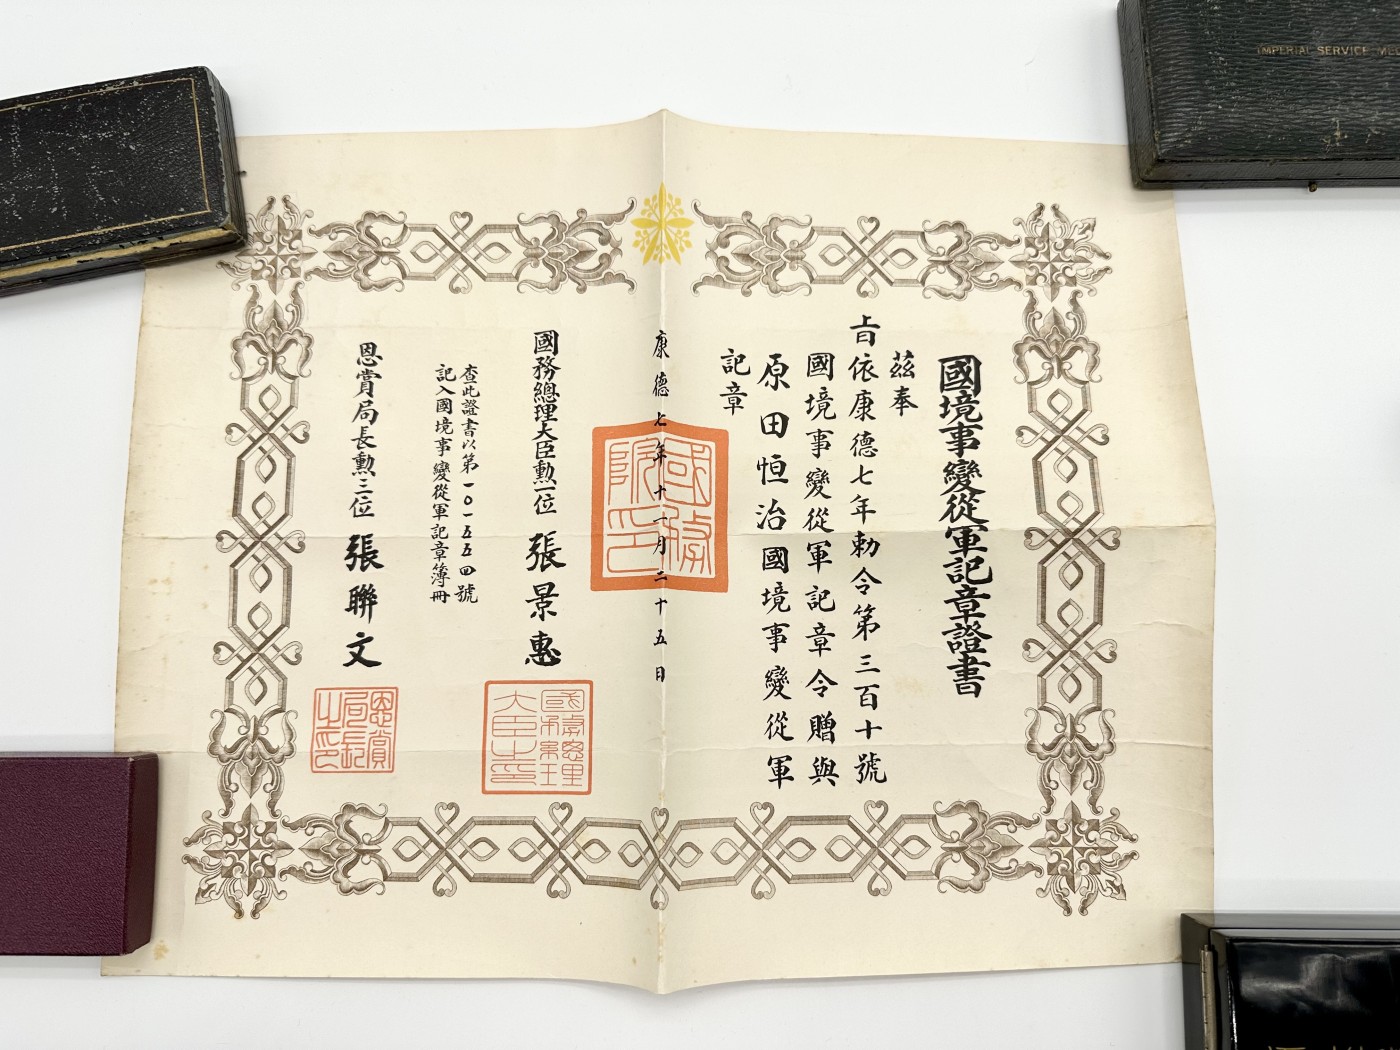 國境事變從軍記章證書
茲奉
旨依康德七年勅令第三百十號
國境事變從軍記章令贈與
原田恒治國境事變從軍
記章
康德七年十一月二十五日
國務院印
國務總理大臣勲一位 張景惠
國務總理大臣之印
查此證書以第一〇一五五四號
記入國境事變從軍記章簿冊
恩賞局長勲三位 張聯文
恩賞局長之印
IMPERIAL SERVICE